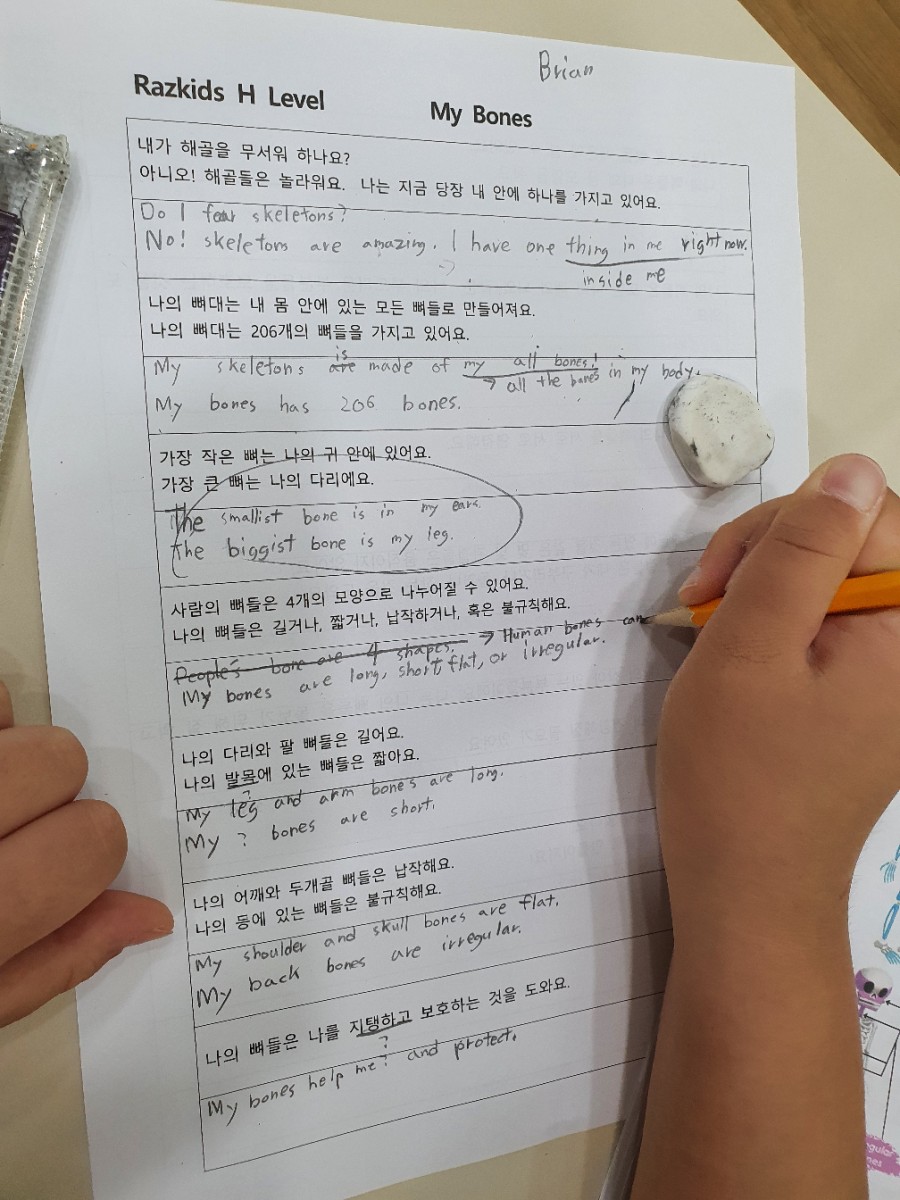 Brian
Razkids H Level
My Bones
내가 해골을 무서워 하나요?
아니오! 해골들은 놀라워요. 나는 지금 당장 내 안에 하나를 가지고 있어요.
Do I fear skeletons?
No! skeletons are amazing. I have one thing in me right now.
inside me
나의 뼈대는 내 몸 안에 있는 모든 뼈들로 만들어져요.
나의 뼈대는 206개의 뼈들을 가지고 있어요.
is
My skeletons are made of my all bones! in my body.
→ all the bones
My bones has 206 bones.
가장 작은 뼈는 나의 귀 안에 있어요.
가장 큰 뼈는 나의 다리에요.
The smallist bone is in my ears.
the biggist bone is my leg.
사람의 뼈들은 4개의 모양으로 나누어질 수 있어요.
나의 뼈들은 길거나, 짧거나, 납작하거나, 혹은 불규칙해요.
People's bone are 4 shapes. → Human bones can
My bones are long, short, flat, or irregular.
나의 다리와 팔 뼈들은 길어요.
나의 발목에 있는 뼈들은 짧아요.
?
My leg and arm bones are long.
My ? bones are short.
나의 어깨와 두개골 뼈들은 납작해요.
나의 등에 있는 뼈들은 불규칙해요.
My shoulder and skull bones are flat.
My back bones are irregular.
나의 뼈들은 나를 지탱하고 보호하는 것을 도와요.
?
My bones help me? and protect.